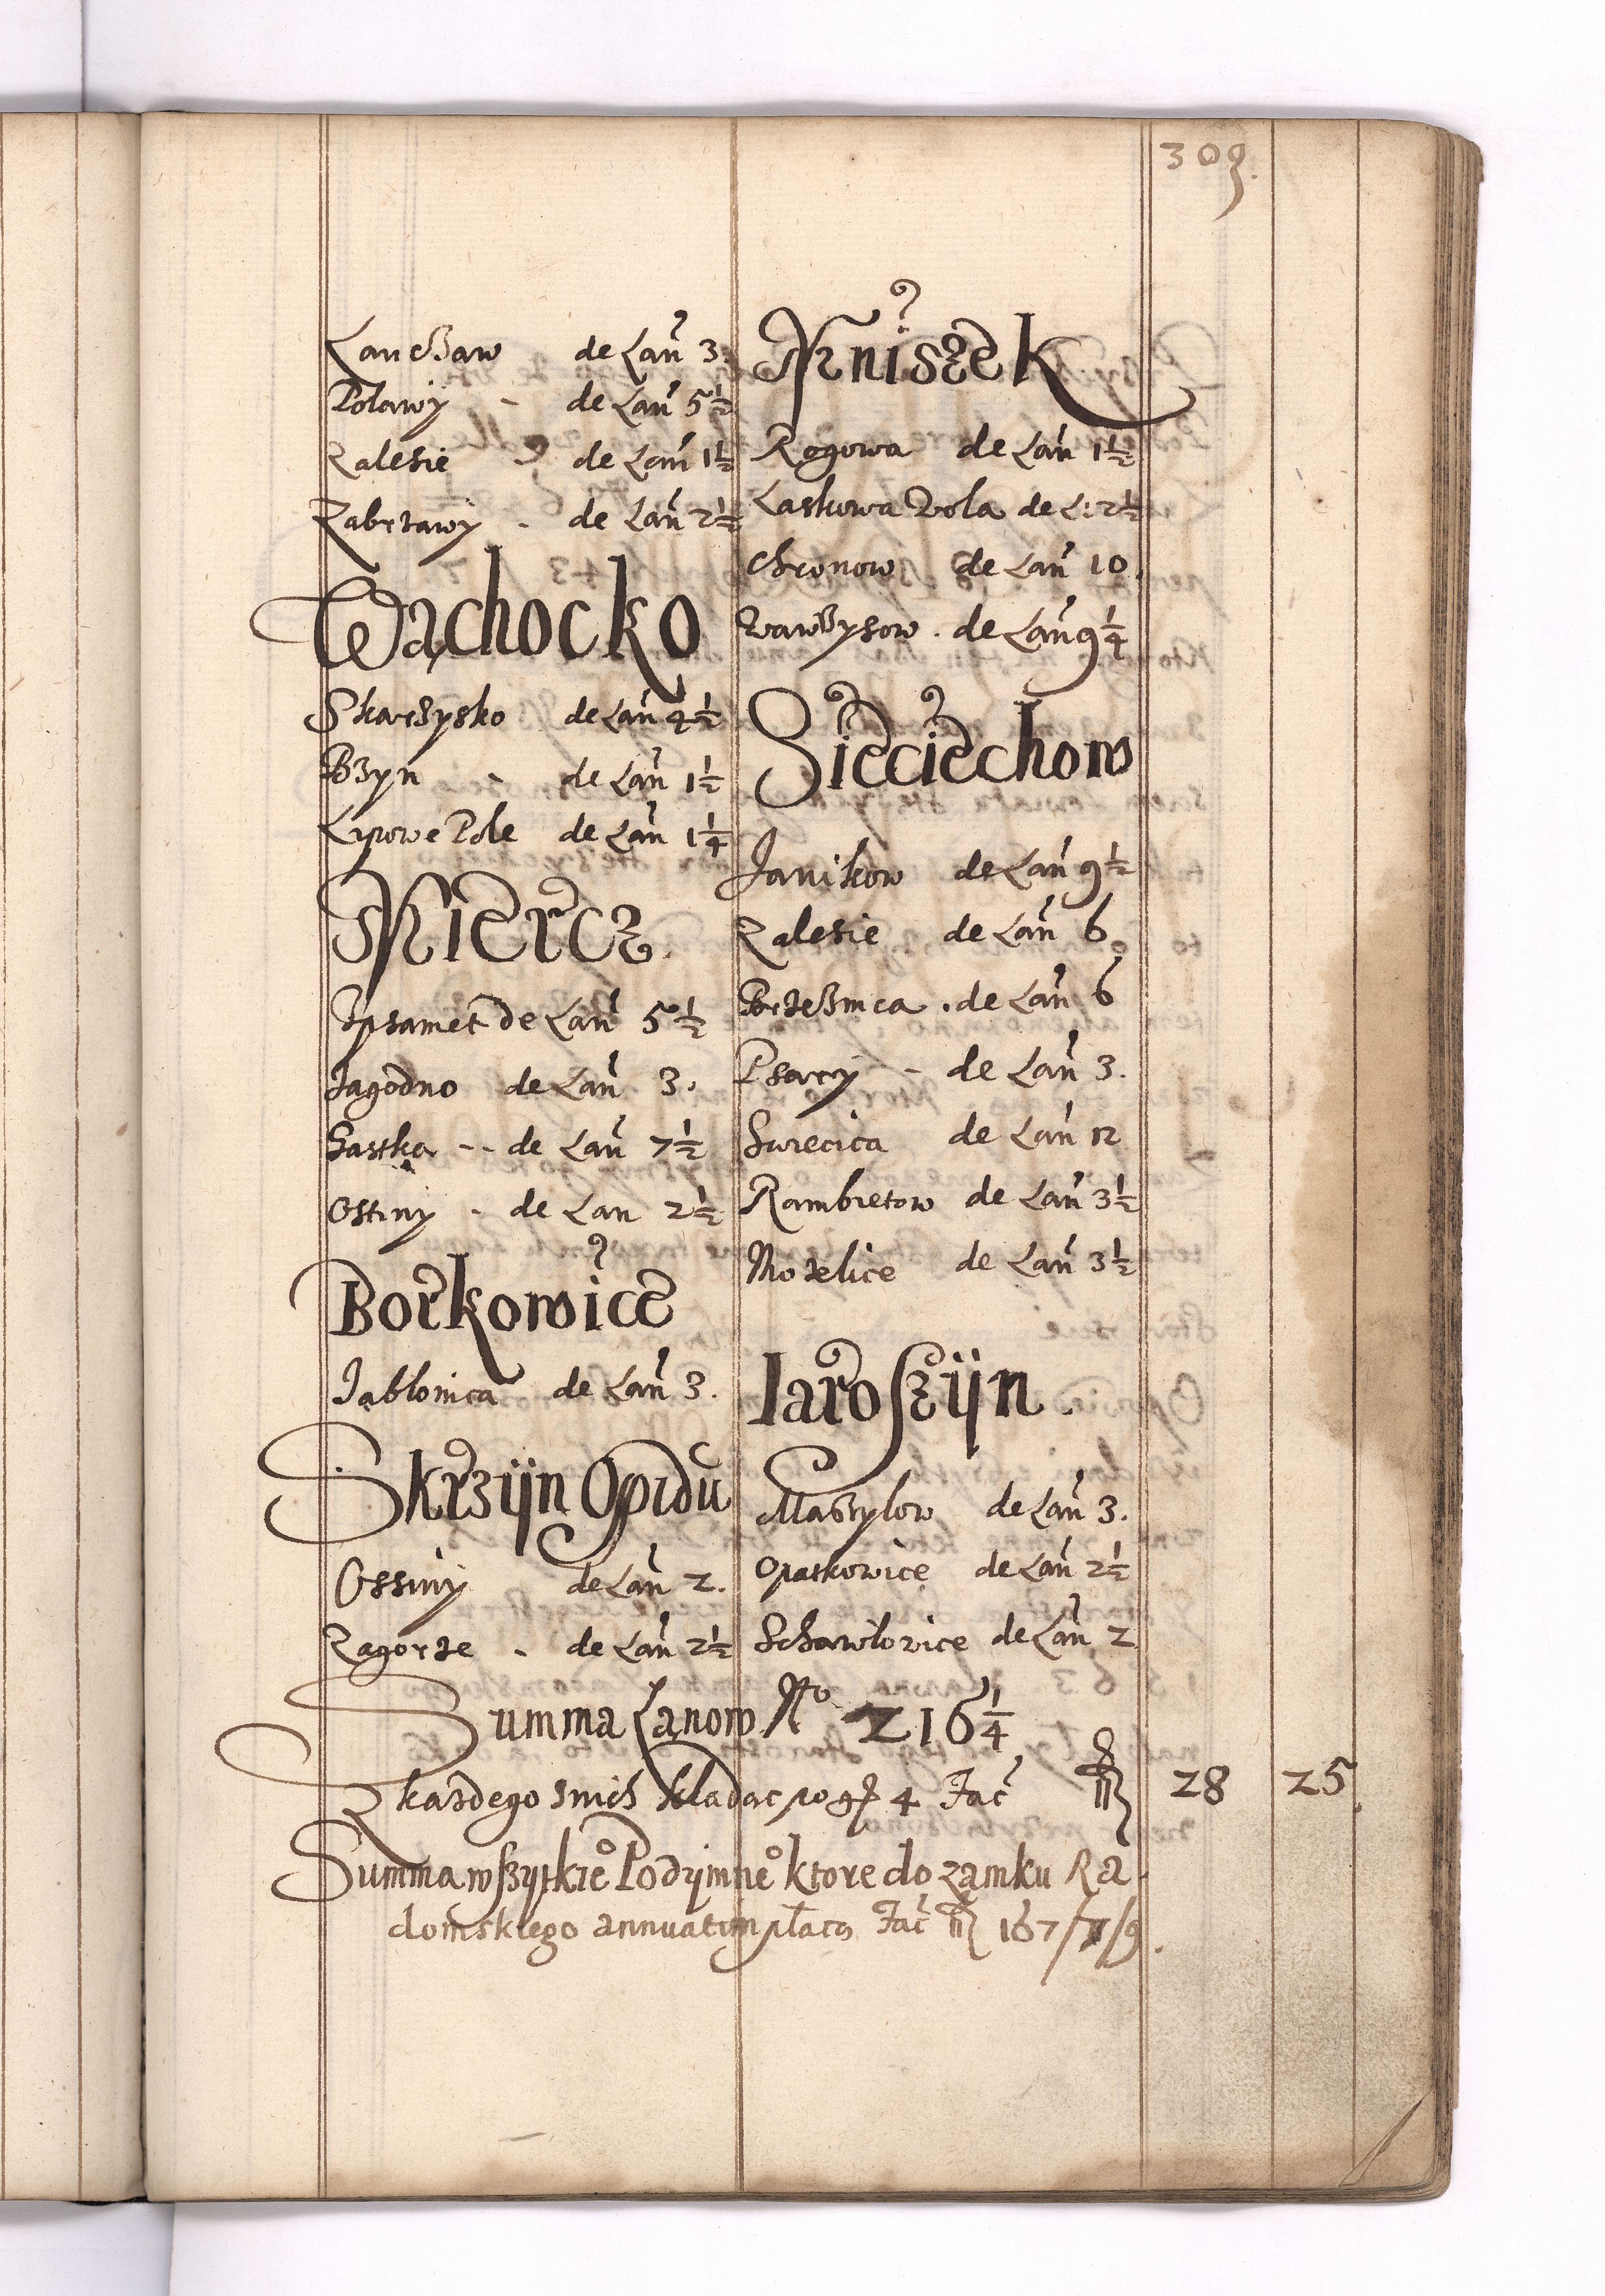 309.
Lanczaw de Lan 3.
Polawy - de Lan 5½
Zalesie de Lan 1½
Zabrzawy - de Lan 2½
Wąchocko
Skarzysko de Lan 4½
Bzyn - de Lan 1½
Lipowe Pole de Lan 1¼
Mierez.
Ipsamet de Lan 5½
Jagodno de Lan 3.
Gastka -- de Lan 7½
Ostiny - de Lan 2½
Borkowice
Jablonica de Lan 3.
Skrzÿn Opidu
Ossiny de Lan 2.
Zagorze - de Lan 2½
Mniszek
Rogowa de Lan 1½
Laskowa Wola de L: 2½
Chronow de Lan 10.
Wawrzysow . de Lan 9¼
Sieciechow
Janikow de Lan 9½
Zalesie de Lan 6.
Brzeznica . de Lan 6
Psary - de Lan 3.
Swiecica de Lan 12
Rambietow de Lan 3½
Mozelice de Lan 3½
Iaroszÿn.
Maszylow de Lan 3.
Opatkowice de Lan 2½
Schawlowice de Lan 2
Summa Lanow No 216¼
Z kazdego snich kladac po gr 4 Fac 28 25.
Summa wszytkie° Podymne° ktore do zamku Ra
domskiego annuatim płacą Fac 167/11/9.